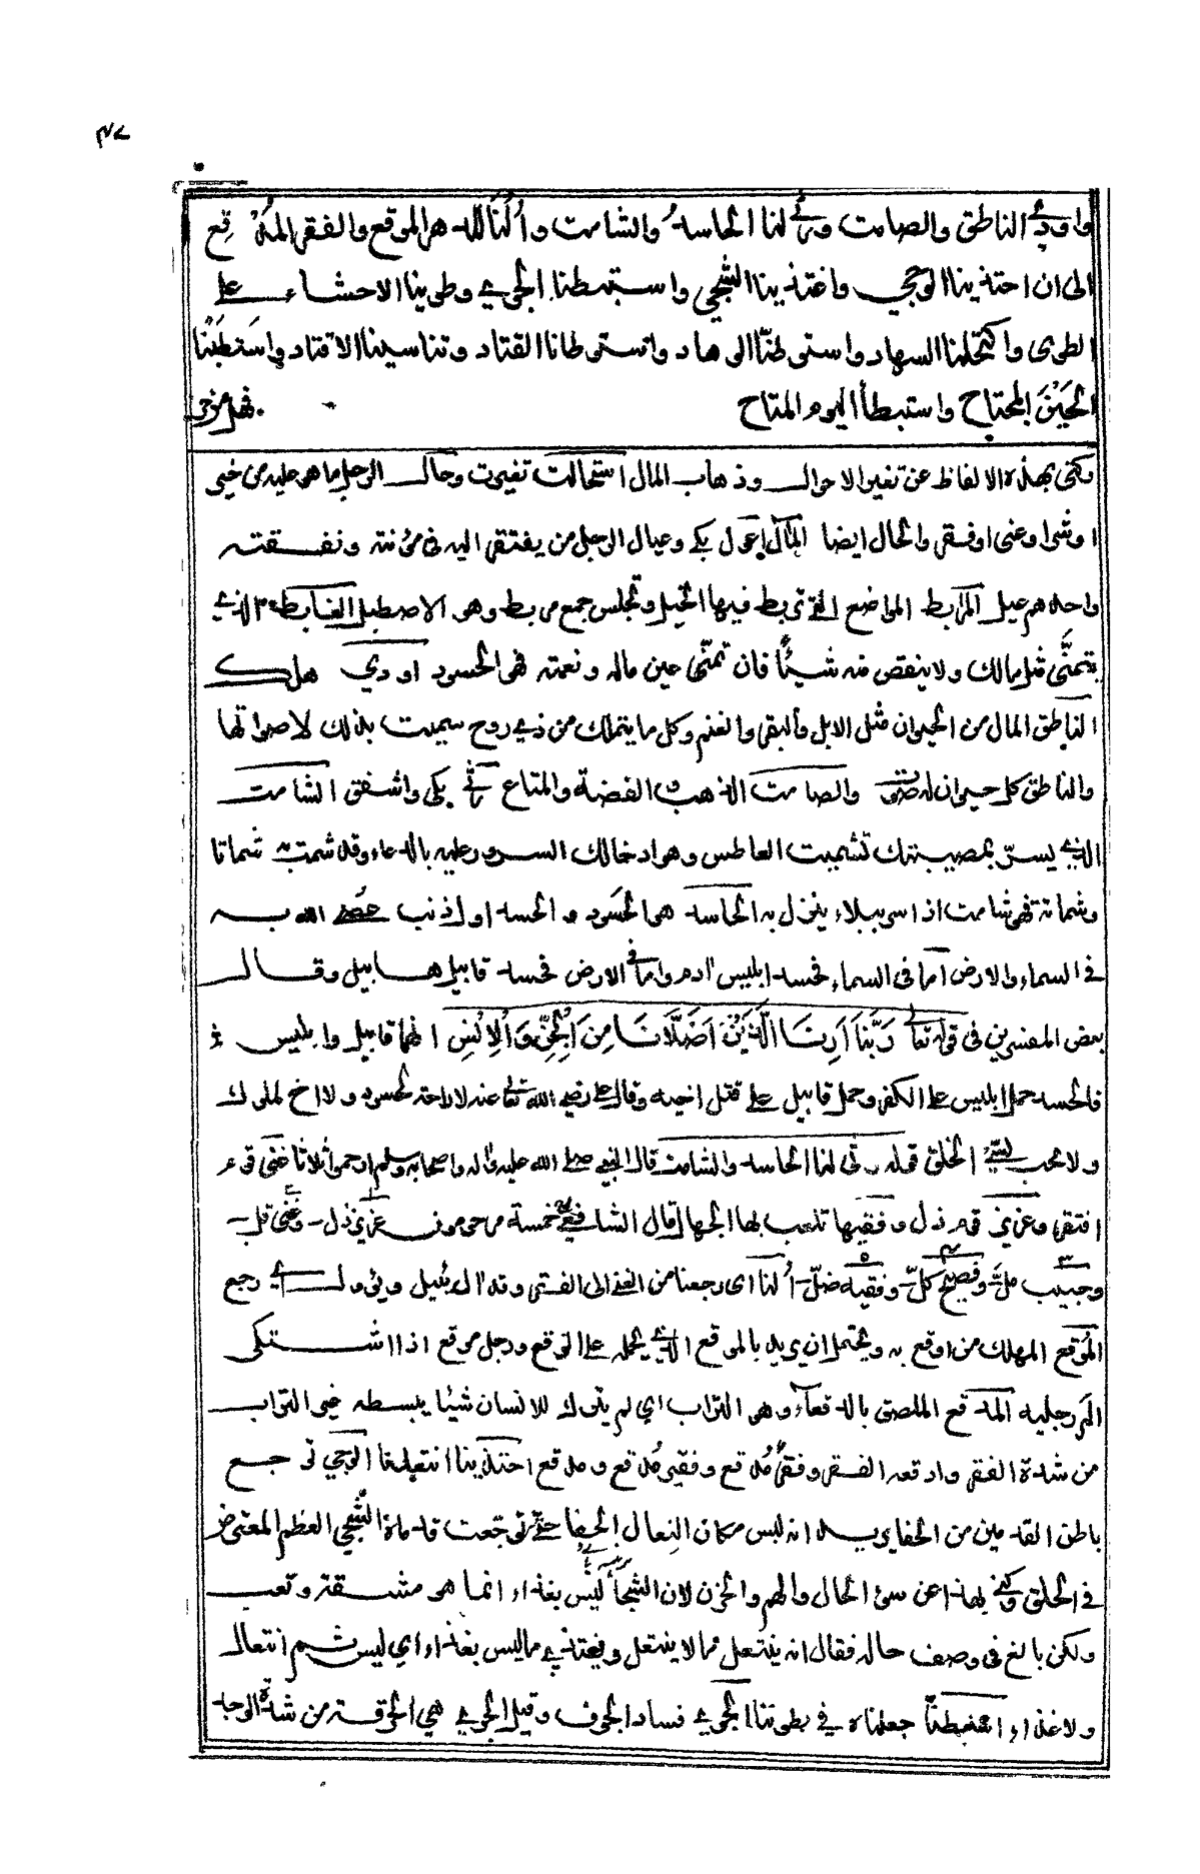 ٣٧
واودى الناطق والصامت ورثى لنا الحاسد والشامت واُلنا للدهر الموقع والفقر المُدْقِع
الى ان احتذينا الوجى واغتذينا الشجى واستبطنا الجوى وطوينا الاحشاء على
الطوى واكتحلنا السهاد واستوطنّا الوهاد واستوطانا القتاد وتناسينا الاقتاد واستَطَبْنا
الحَيْنَ المجتاح واستبطأ اليوم المتاح فهل من حر
وكنى بهذه الالفاظ عن تغير الاحوال وذهاب المال استحالت تغيرت وحال الرجل ما هو عليه من خير
او شر او غنى او فقر والحال ايضا المال اعول بكى وعيال الرجل من يفتقر اليه فى مؤنته ونفقته
واحدهم عيل المرابط المواضع التى تربط فيها الخيل وتجلس جمع مربط وهو الاصطبل الغابط الذى
يتمنّى مثل مالك ولا ينقص منه شيئًا فان تمنّى عين ماله ونعمته فهو الحسود اودى هلك
الناطق المال من الحيوان مثل الابل والبقر والغنم وكل ما يتملك من ذى روح سميت بذلك لاصواتها
والناطق كل حيوان له صوت والصامت الذهب والفضة والمتاع رثى بكى واشفق الشامت
الذى يسرّ بمصيبتك تشميت العاطس وهو ادخالك السرور عليه بالدعاء وقد شمت به شماتا
وشماتة فهو شامت اذا سر ببلاء ينزل به الحاسد هو الحَسُود والحسد اول ذنب عُصى الله به
فى السماء والارض اما فى السماء فحسد ابليس ادم واما فى الارض فحسد قابيل هابيل وقال
بعض المفسرين فى قوله تعالى رَبَّنَا اَرِنَا الَّذَيْنِ اَضَلَّانَا مِنَ الْجِنِّ وَالْاِنْسِ انهما قابيل وابليس
فالحسد حمل ابليس على الكفر وحمل قابيل على قتل اخيه وقال على رضى الله تعالى عنه لا راحة لحسود ولا اخ لملوك
ولا محب لسيّئ الخلق قوله رثى لنا الحاسد والشامت قال النبى صلى الله عليه واله واصحابه وسلم ارحموا ثلاثا غنى قوم
افتقر وعزيز قوم ذل وفقيها تلعب بها الجهال قال الشافعى خمسة مرحومون عزيز ذل وغنى قلّ
وحبيب ملّ وفصيح كلّ وفقيه ضلّ اُلنا اى رجعنا من الغنى الى الفقر وقد ال يئيل ويؤول اى رجع
المُوقع المهلك من اوقع به ويحتمل ان يريد بالموقع الذى يحمله على الوقع ورجل موقع اذا اشتكى
الم رجليه المدقع الملصق بالدقعاء وهو التراب اى لم يترك للانسان شيئا يبسطه غير التراب
من شدة الفقر وادقعه الفقر وفقرٌ مُدقع وفقير مُدقع ومدقع احتذينا انتعلنا الوجى توجع
باطن القدمين من الحفا يريد انه لبس مكان النعال الحفا حتى توجعت قدماه الشجى العظم المعترض
فى الحلق وكنى بهذا عن سوء الحال والهم والحزن لان الشجا ليس بغذاء انما هو مشقة وتعب
ولكن بالغ فى وصف حاله فقال انه ينتعل مما لا ينتعل ويغتذى مما ليس بغذاء اى ليس ثم انتعال
ولا غذاء استبطنّا جعلناه فى بطوننا الجوى فساد الجوف وقيل الجوى هى الحرقة من شدة الوجد